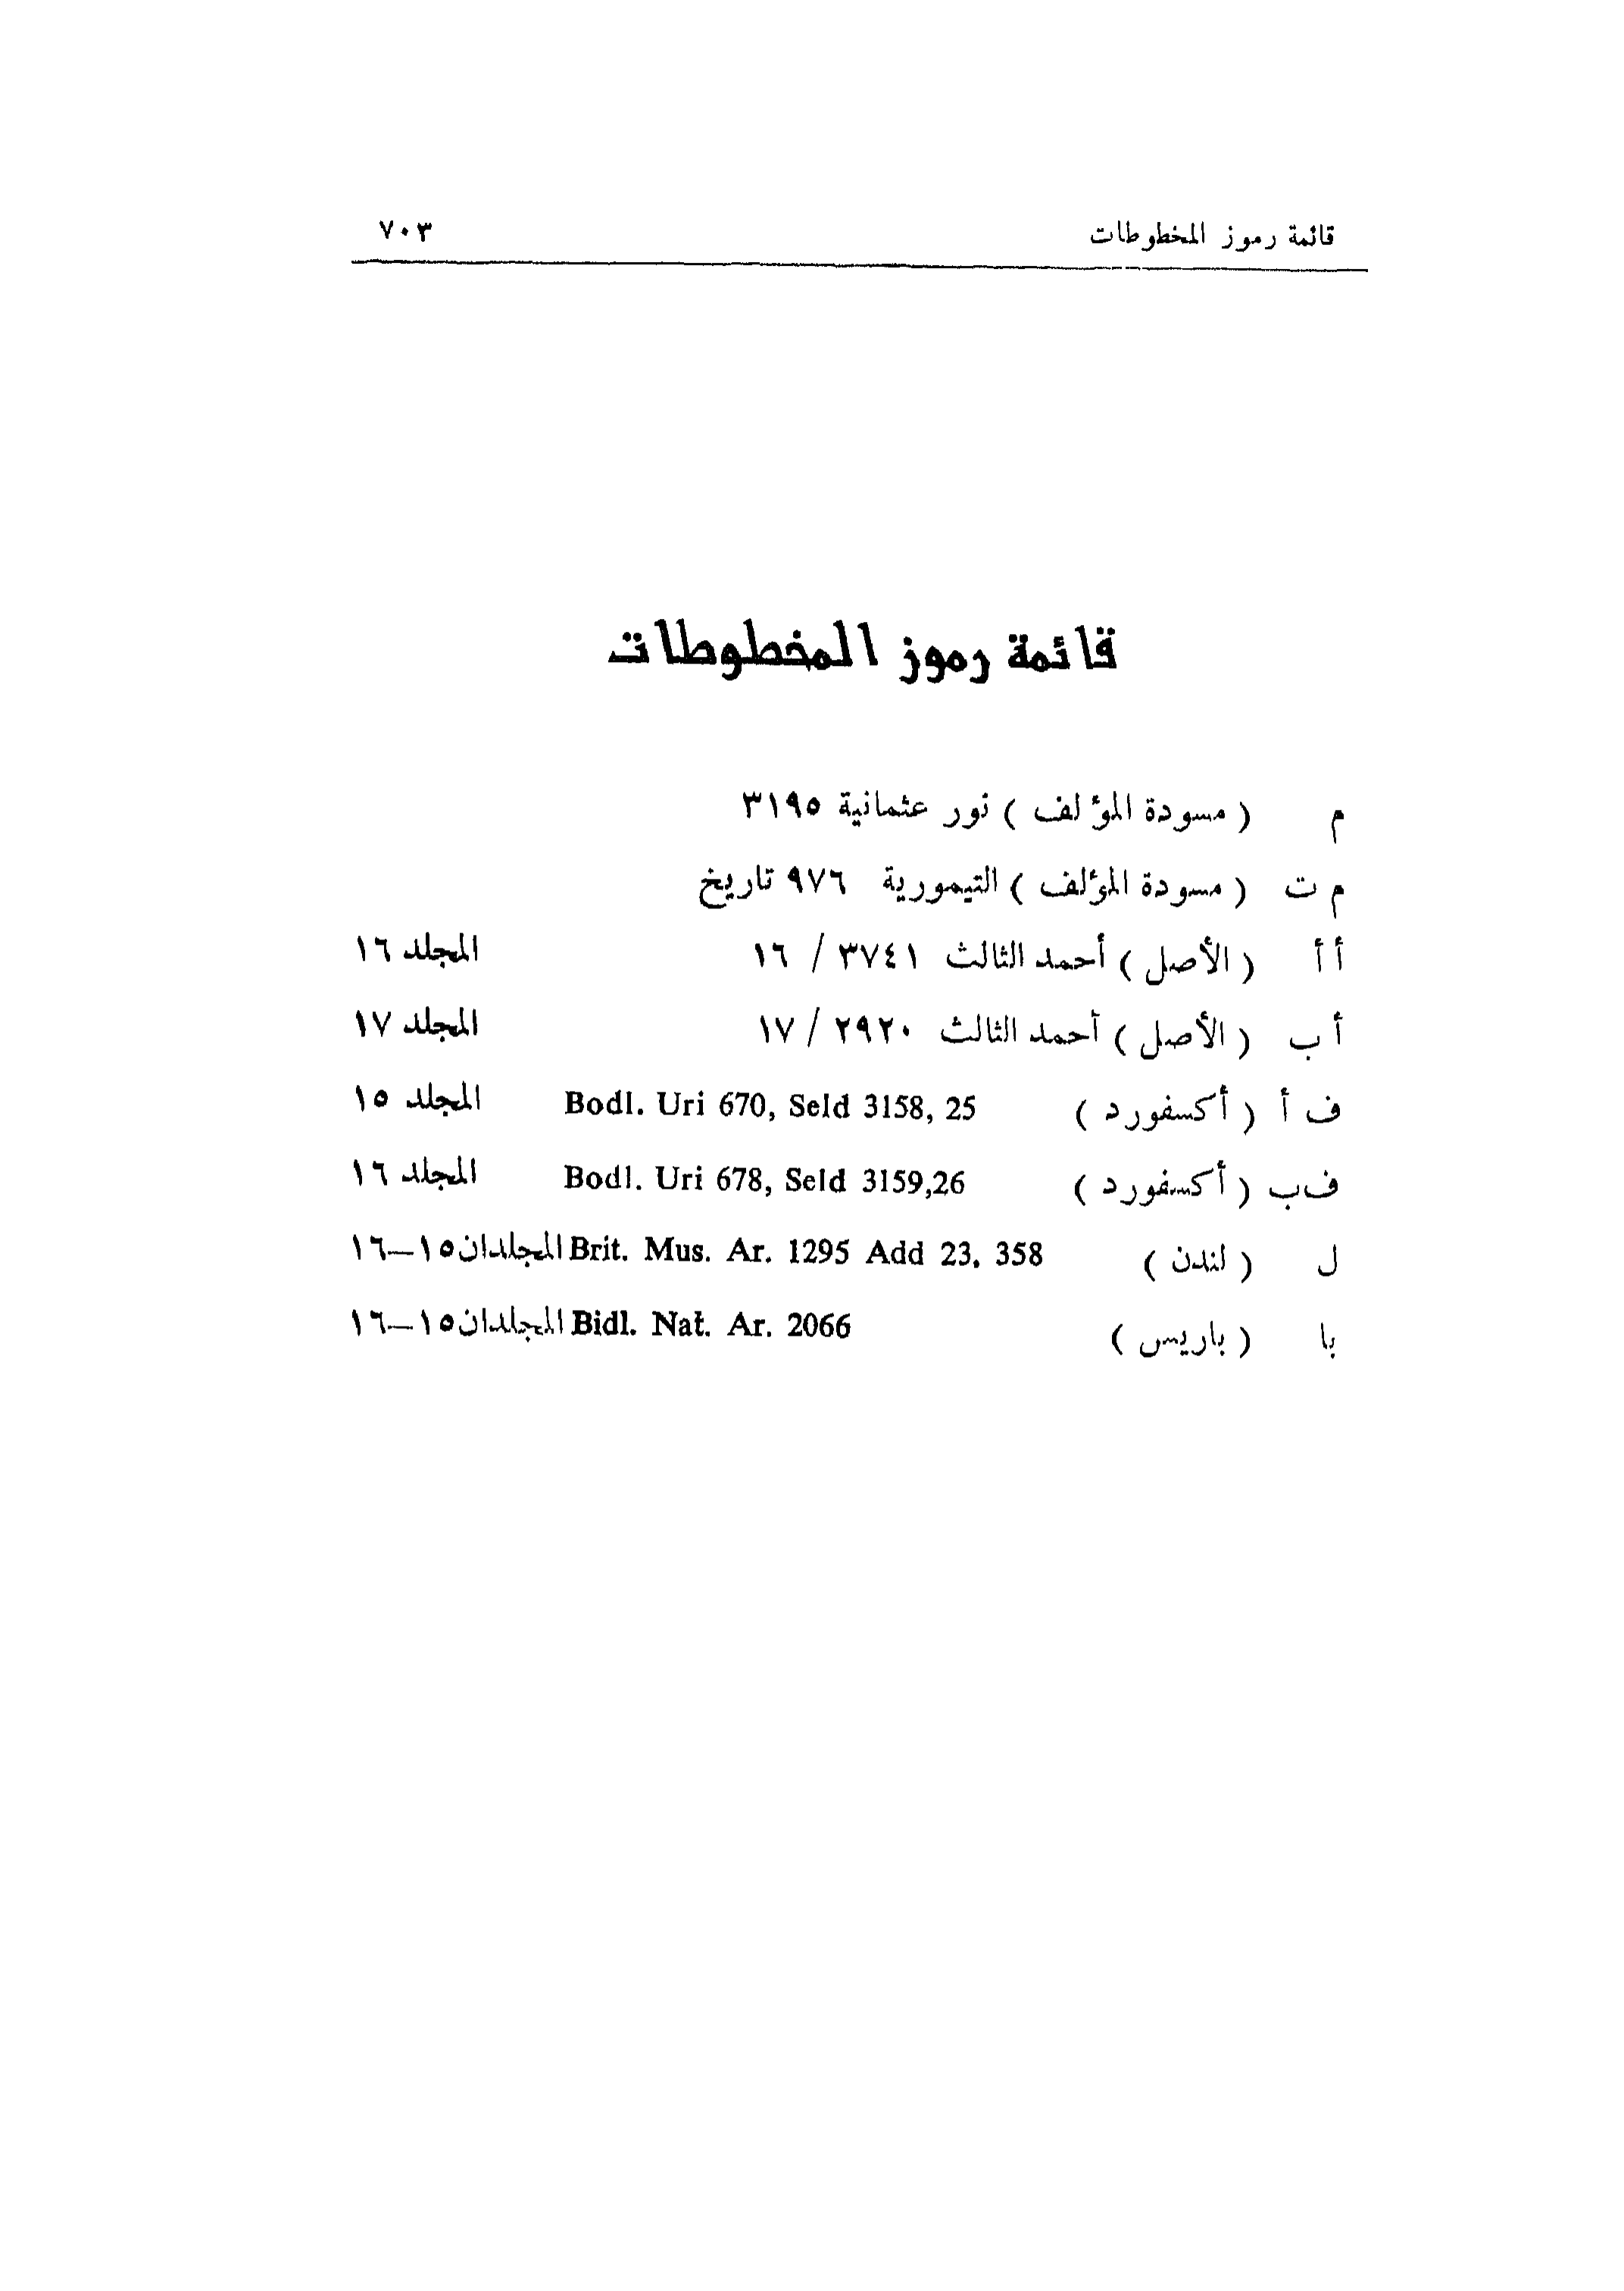 قائمة رموز المخطوطات ٧٠٣
قائمة رموز المخطوطات
م ( مسودة المؤلف ) نور عثمانية ٣١٩٥
م ت ( مسودة المؤلف ) التيمورية ٩٧٦ تاريخ
أ أ ( الأصل ) أحمد الثالث ٣٧٤١ / ١٦ المجلد ١٦
أ ب ( الأصل ) أحمد الثالث ٢٩٢٠ / ١٧ المجلد ١٧
ف أ ( أكسفورد ) Bodl. Uri 670, Seld 3158, 25 المجلد ١٥
ف ب ( أكسفورد ) Bodl. Uri 678, Seld 3159,26 المجلد ١٦
ل ( لندن ) Brit. Mus. Ar. 1295 Add 23, 358 المجلدان ١٥–١٦
با ( باريس ) Bidl. Nat. Ar. 2066 المجلدان ١٥–١٦